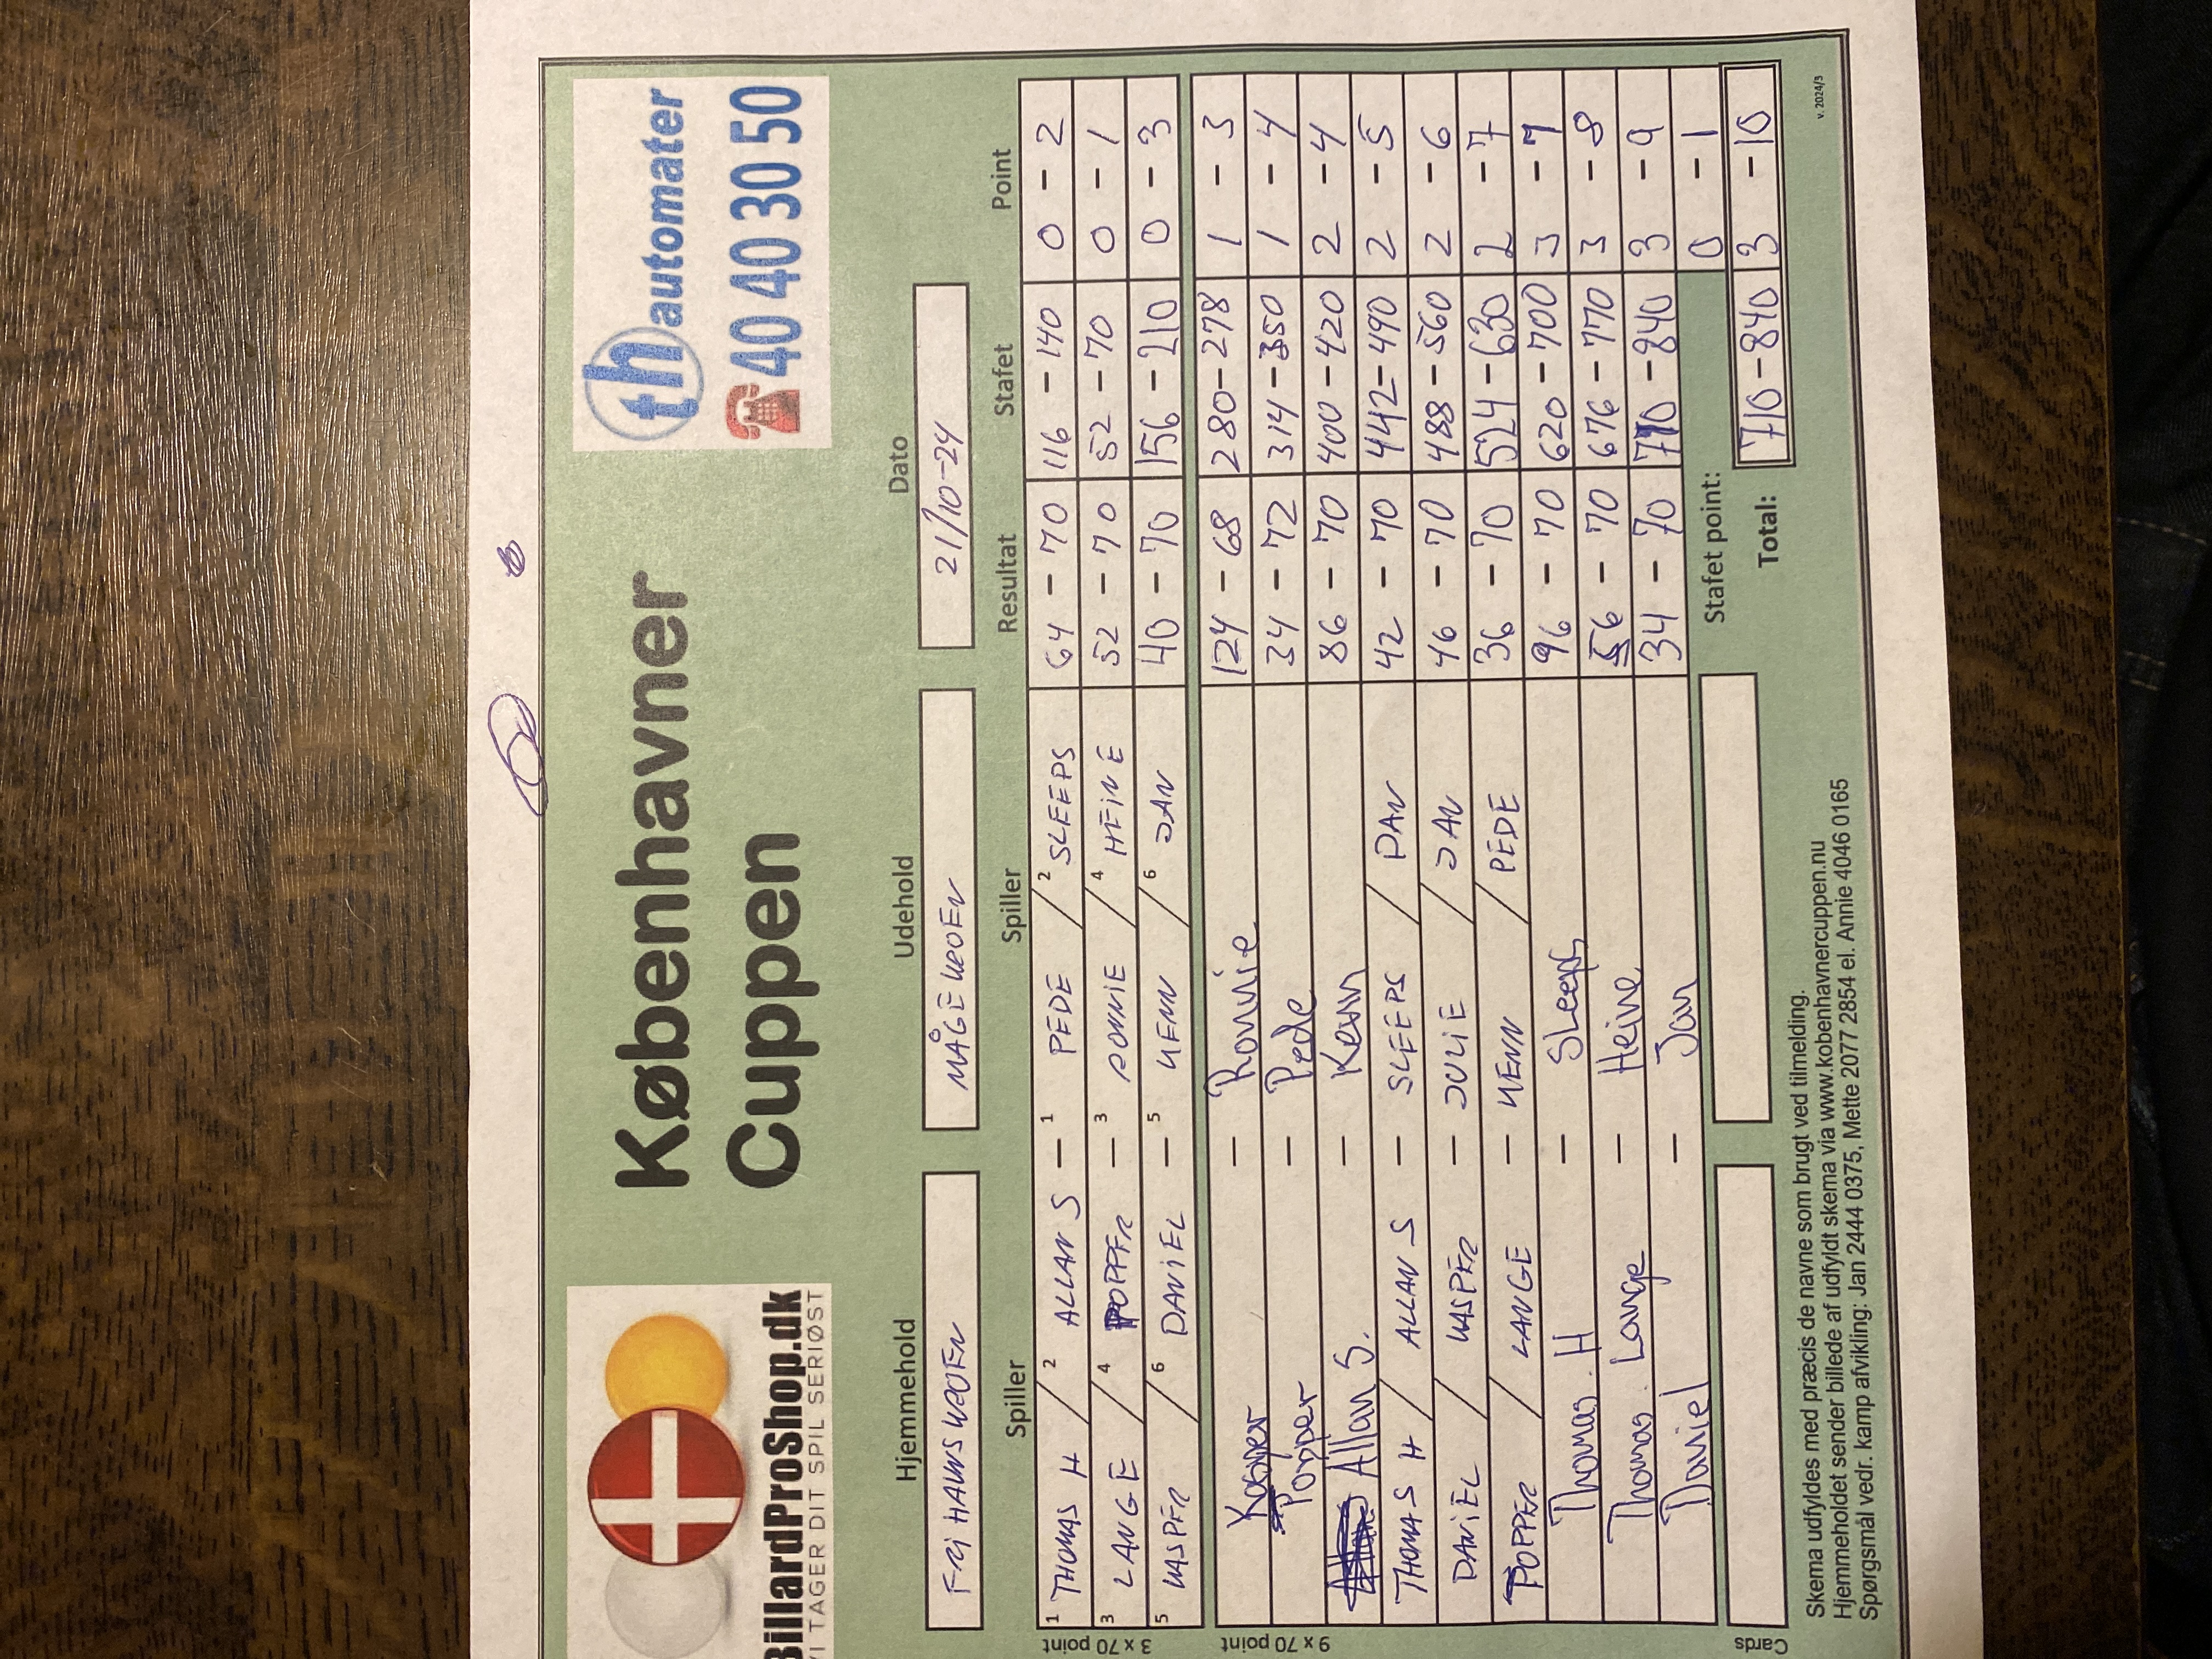 BillardProShop.dk
VI TAGER DIT SPIL SERIØST
Københavner
Cuppen
th automater
40 40 30 50
Hjemmehold Udehold Dato
FRI HAVNSKROEN MÅGEKROEN 21/10-24
Spiller Spiller Resultat Stafet Point
3 x 70 point
1 THOMAS H / 2 ALLAN S - 1 PEDE / 2 SLEEPS 64 - 70 116 - 140 0 - 2
3 LANGE / 4 POPPER - 3 RONNIE / 4 HEINE 52 - 70 52 - 70 0 - 1
5 KASPER / 6 DANIEL - 5 KENN / 6 JAN 40 - 70 156 - 210 0 - 3
9 x 70 point
Kasper - Ronnie 124 - 68 280 - 278 1 - 3
Popper - Pede 34 - 72 314 - 350 1 - 4
Allan S. - Kenn 86 - 70 400 - 420 2 - 4
THOMAS H / ALLAN S - SLEEPS / DAN 42 - 70 442 - 490 2 - 5
DANIEL / KASPER - JULIE / JAN 46 - 70 488 - 560 2 - 6
POPPER / LANGE - KENN / PEDE 36 - 70 524 - 630 2 - 7
Thomas. H - Sleeps 96 - 70 620 - 700 3 - 7
Thomas. Lange - Heine 56 - 70 676 - 770 3 - 8
Daniel - Jan 34 - 70 710 - 840 3 - 9
Stafet point: 0 - 1
Cards
Total: 710 - 840 3 - 10
Skema udfyldes med præcis de navne som brugt ved tilmelding.
Hjemmeholdet sender billede af udfyldt skema via www.kobenhavnercuppen.nu
Spørgsmål vedr. kamp afvikling: Jan 2444 0375, Mette 2077 2854 el. Annie 4046 0165
v. 2024/3